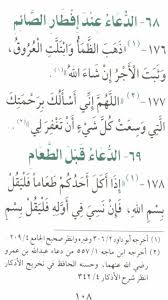 ٦٨- الدُّعَاءُ عِنْدَ إِفْطَارِ الصَّائِمِ
١٧٦- (١) «ذَهَبَ الظَّمَأُ وَابْتَلَّتِ الْعُرُوقُ،
وَثَبَتَ الْأَجْرُ إِنْ شَاءَ اللَّهُ»(١).
١٧٧- (٢) «اللَّهُمَّ إِنِّي أَسْأَلُكَ بِرَحْمَتِكَ
الَّتِي وَسِعَتْ كُلَّ شَيْءٍ أَنْ تَغْفِرَ لِي»(٢).
٦٩- الدُّعَاءُ قَبْلَ الطَّعَامِ
١٧٨- (١) «إِذَا أَكَلَ أَحَدُكُمْ طَعَاماً فَلْيَقُلْ
بِسْمِ اللَّهِ، فَإِنْ نَسِيَ فِي أَوَّلِهِ فَلْيَقُلْ بِسْمِ
(١) أخرجه أبو داود ٣٠٦/٢ وغيره وانظر صحيح الجامع ٢٠٩/٤.
(٢) أخرجه ابن ماجه ٥٥٧/١ من دعاء عبدالله بن عمرو
رضي الله عنهما، وحسنه الحافظ في تخريج الأذكار
انظر شرح الأذكار ٣٤٢/٤
١٠٨